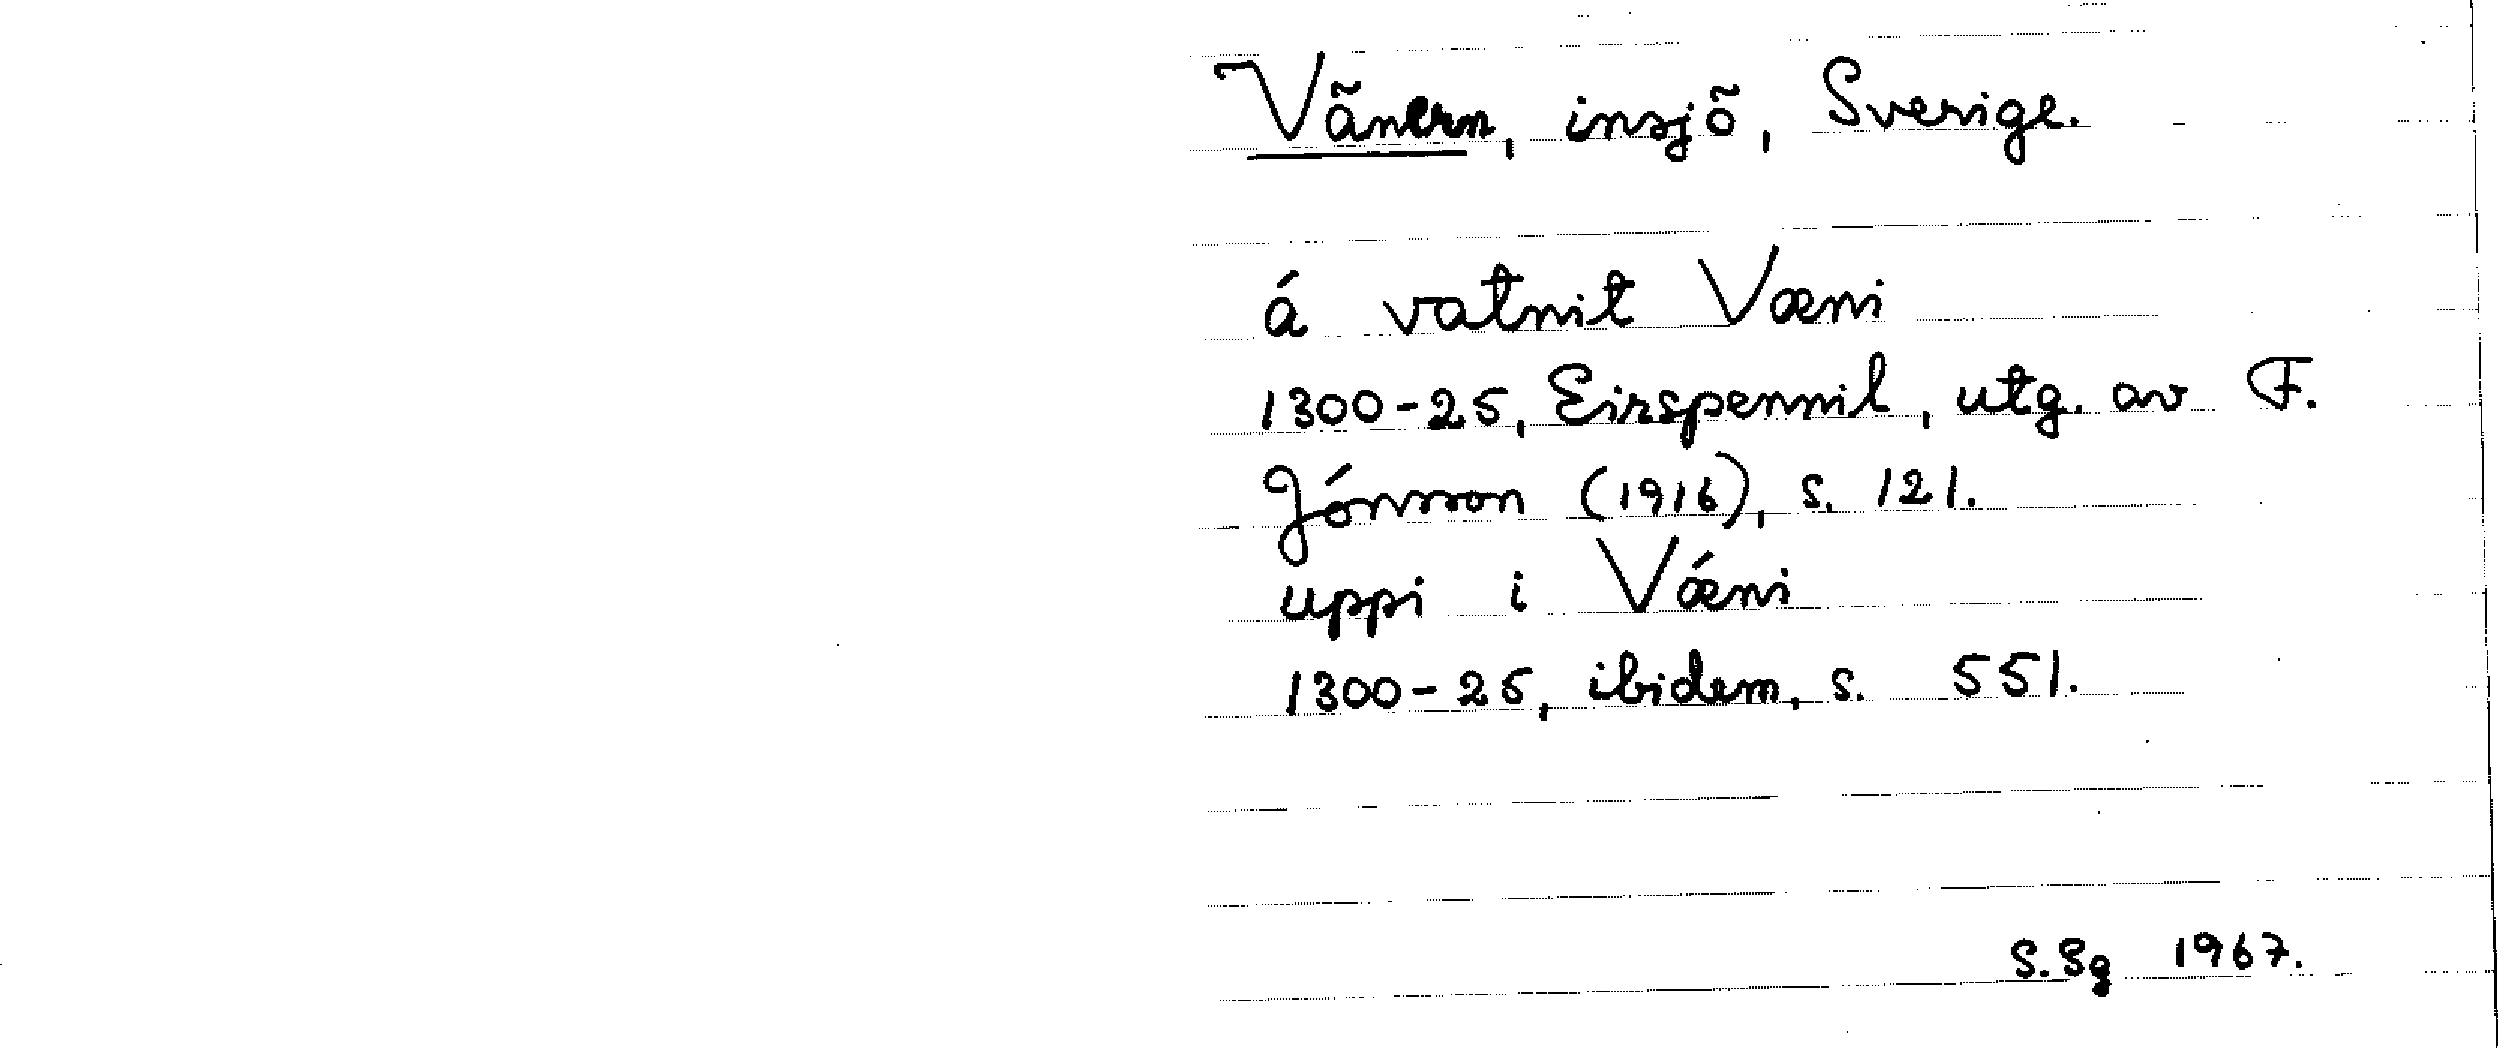 Vänern, insjö, Sverige.
á vatnit Væni
1300-25, Eirspennil, utg. av F.
Jónsson (1916), s. 121.
uppi i Vǽni
1300-25, ibidem, s. 551.
S.Sg 1967.